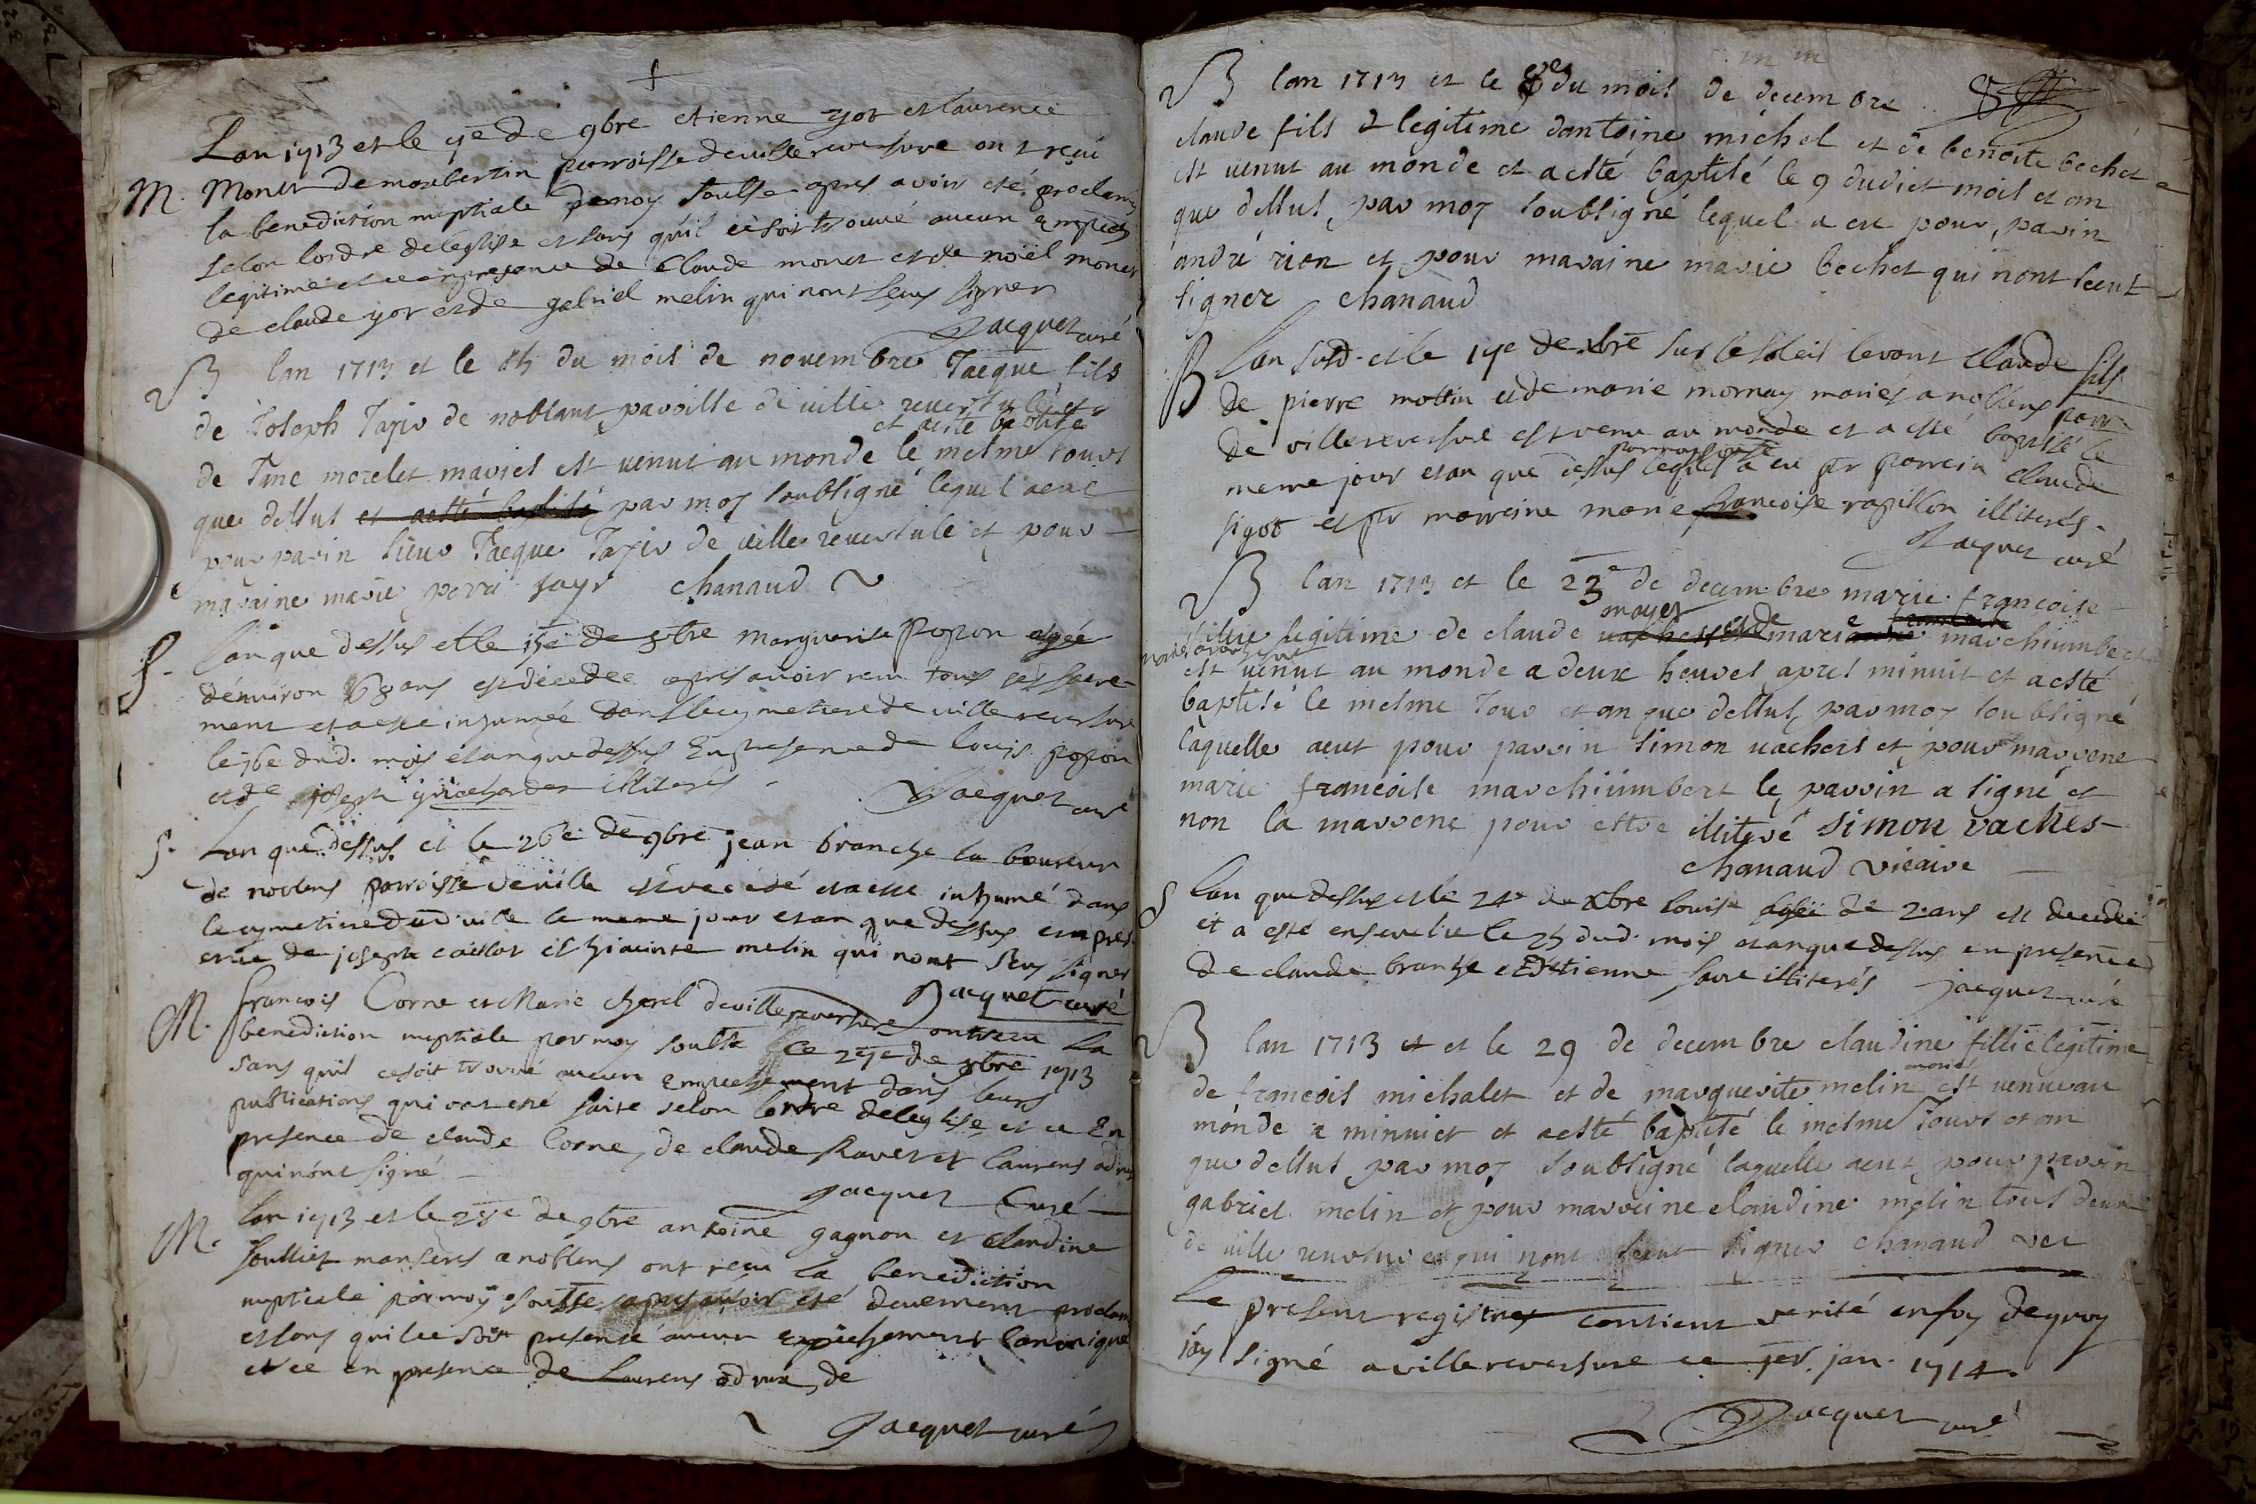 Lan 1713 et le 7e de 9bre etienne yot et laurence
M. Monet de monbertin parroisse de villereversure ont reçu
la benediction nuptiale de moy soubse apres avoir esté proclamés
selon lordre de leglise et sans quil ce soit trouvé aucun empech
legitime et ce en presence de Claude monet et de noël monet
de claude yot et de gabriel melin qui nont sceus signer
Jacquet curé
B lan 1713 et le du mois de novembre Jacque fils
de Joseph de noblans paroisse de ville reversule et
et aesté baptisé
de Jane morelet mariés est venut au monde le mesme jours
que dessus et aesté baptisé par moy soubsigné lequel aeut
pour parin sieur Jacque de ville reversule et pour
maraine marie chanaud
S. Lan que dessus et le 15e de 9bre marguerite popon agée
denviron 68 ans est décedée apres avoir receu tous ses sacre-
ment et a esté inhumée dans le cymetiere de ville reversure
le 16e dud. mois et an que dessus En presence de louis popon
et de joseph illiterés
Jacquet curé
S. Lan que dessus et le 26e de 9bre jean branche laboureur
de noblens parroisse de ville est decedé et a esté inhumé dans
le cymetiere dud ville le meme jour et an que dessus en pres
ence de joseph caillat et hiacinte melin qui nont sceus signer
Jacquet curé
M. francois Corne et Marie cherel de villereversure ont receu la
benediction nuptiale par moy soubse ce 27e de 9bre 1713
sans quil ce soit trouvé aucun empechement dans leurs
publications qui ont esté faite selon lordre deleglise et ce En
presence de claude Corne, de claude Ravet et laurens
qui nont signé
Jacquet Curé
M. Lan 1713 et le 28e de 9bre antoine gagnon et claudine
soulliet a noblens ont receu la benediction
nuptiale par moy soubse apres avoir esté deuement proclam
et sans quil ce soit presenté aucun empechement canonique
et ce en presence de Laurens de
Jacquet curé
B lan 1713 et le du mois de decembre
claude fils legitime dantoine michel et de benoite bechet
est venut au monde et aesté baptisé le 9 dudict mois et an
que dessus par moy soubsigné lequel a eu pour parin
andré rion et pour maraine marie bechet qui nont sceut
signer chanaud
B Lan susd. et le 17e de xbre sur le soleil levant claude fils
de pierre mottin et de marie mornay mariés a noblens parr.
de villereversure est venu au monde et a esté baptisé le
par moy soubse
meme jour et an que dessus lequel a eu pr parrein claude
sigot et pr marreine marie francoise rapillon illiterés.
Jacquet curé
B lan 1713 et le 23e de decembre marie francoise
moyet
fillie legitime de claude et de marie marchiumbert
est venut au monde a deux heures apres minuit et aesté
baptisé le mesme Jour et an que dessus par moy soubsigné
laquelle aeut pour parrin simon vachers et pour marrene
marie francoise marchiumbert le parrin a signé et
non la marrene pour estre illiteré simon vaches
chanaud vicaire
S Lan que dessus et le 24e de xbre louise agée de 2 ans est decedée
et a esté ensevelie le 25 dud. mois et an que dessus en presence
de claude branche et Estienne favre illiterés jacquet curé
B lan 1713 et et le 29 de decembre claudine fillie legitime
mariés
de francois michalet et de marguerite melin est venue au
monde a minuict et aesté baptisé le mesme Jours et an
que dessus par moy soubsigné laquelle aeut pour parin
gabriel melin et pour marreine claudine melin tous deux
de ville reversure et qui nont sceut signer chanaud vic
Le present registre contient verité en foy dequoy
jay signé a villereversure ce 1er. jan. 1714.
Jacquet curé